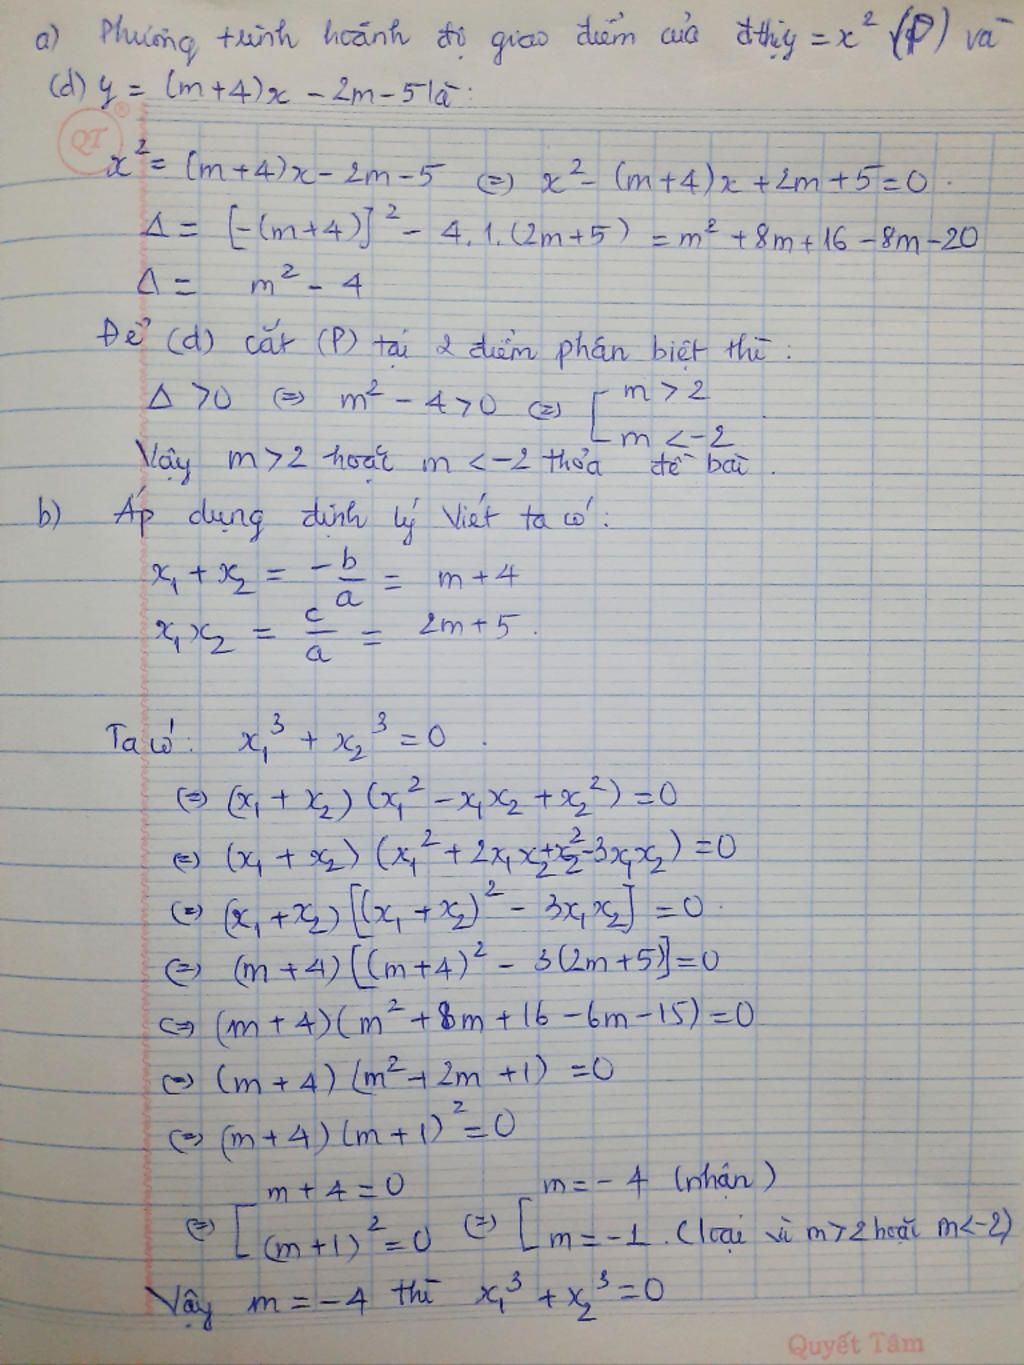 a) Phương trình hoành độ giao điểm của đthị y = x² (P) và
(d) y = (m+4)x - 2m - 5 là:
QT ®
x² = (m+4)x - 2m - 5 (=) x² - (m+4)x + 2m + 5 = 0.
Δ = [-(m+4)]² - 4.1.(2m+5) = m² + 8m + 16 - 8m - 20
Δ = m² - 4
Để (d) cắt (P) tại 2 điểm phân biệt thì:
Δ > 0 (=) m² - 4 > 0 (=) [ m > 2
m < -2
Vậy m > 2 hoặc m < -2 thỏa đề bài.
b) Áp dụng định lý Viét ta có:
x₁ + x₂ = -b/a = m + 4
x₁x₂ = c/a = 2m + 5.
Ta có: x₁³ + x₂³ = 0.
(=) (x₁ + x₂)(x₁² - x₁x₂ + x₂²) = 0
(=) (x₁ + x₂)(x₁² + 2x₁x₂ + x₂² - 3x₁x₂) = 0
(=) (x₁ + x₂)[(x₁ + x₂)² - 3x₁x₂] = 0.
(=) (m + 4)[(m+4)² - 3(2m+5)] = 0
(=) (m + 4)(m² + 8m + 16 - 6m - 15) = 0
(=) (m + 4)(m² + 2m + 1) = 0
(=) (m + 4)(m + 1)² = 0
(=) [ m + 4 = 0 (=) [ m = -4 (nhận)
(m + 1)² = 0 m = -1. (loại vì m > 2 hoặc m < -2)
Vậy m = -4 thì x₁³ + x₂³ = 0
Quyết Tâm